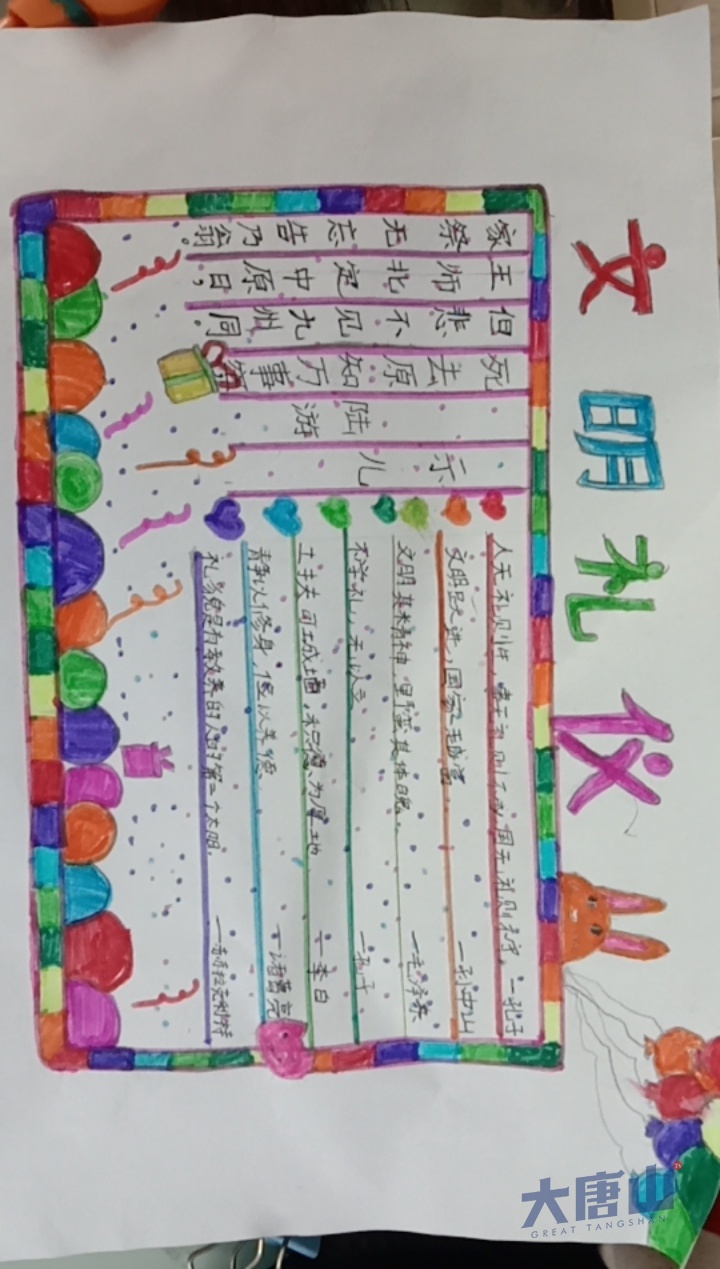 文明礼仪
示儿
陆游
死去原知万事空
但悲不见九州同
王师北定中原日，
家祭无忘告乃翁。
人无礼则生，事无礼则不成，国无礼则不宁。—孔子
文明跃进，国家 —孙中山
文明其精神，野蛮其体魄。—毛泽东
不学礼，无以立 —孔子
土扶可城墙，积德为厚地 —李白
静以修身，俭以养德 —诸葛亮
礼貌是有教养的人的第二个太阳。—赫拉克利特
大唐山
GREAT TANGSHAN